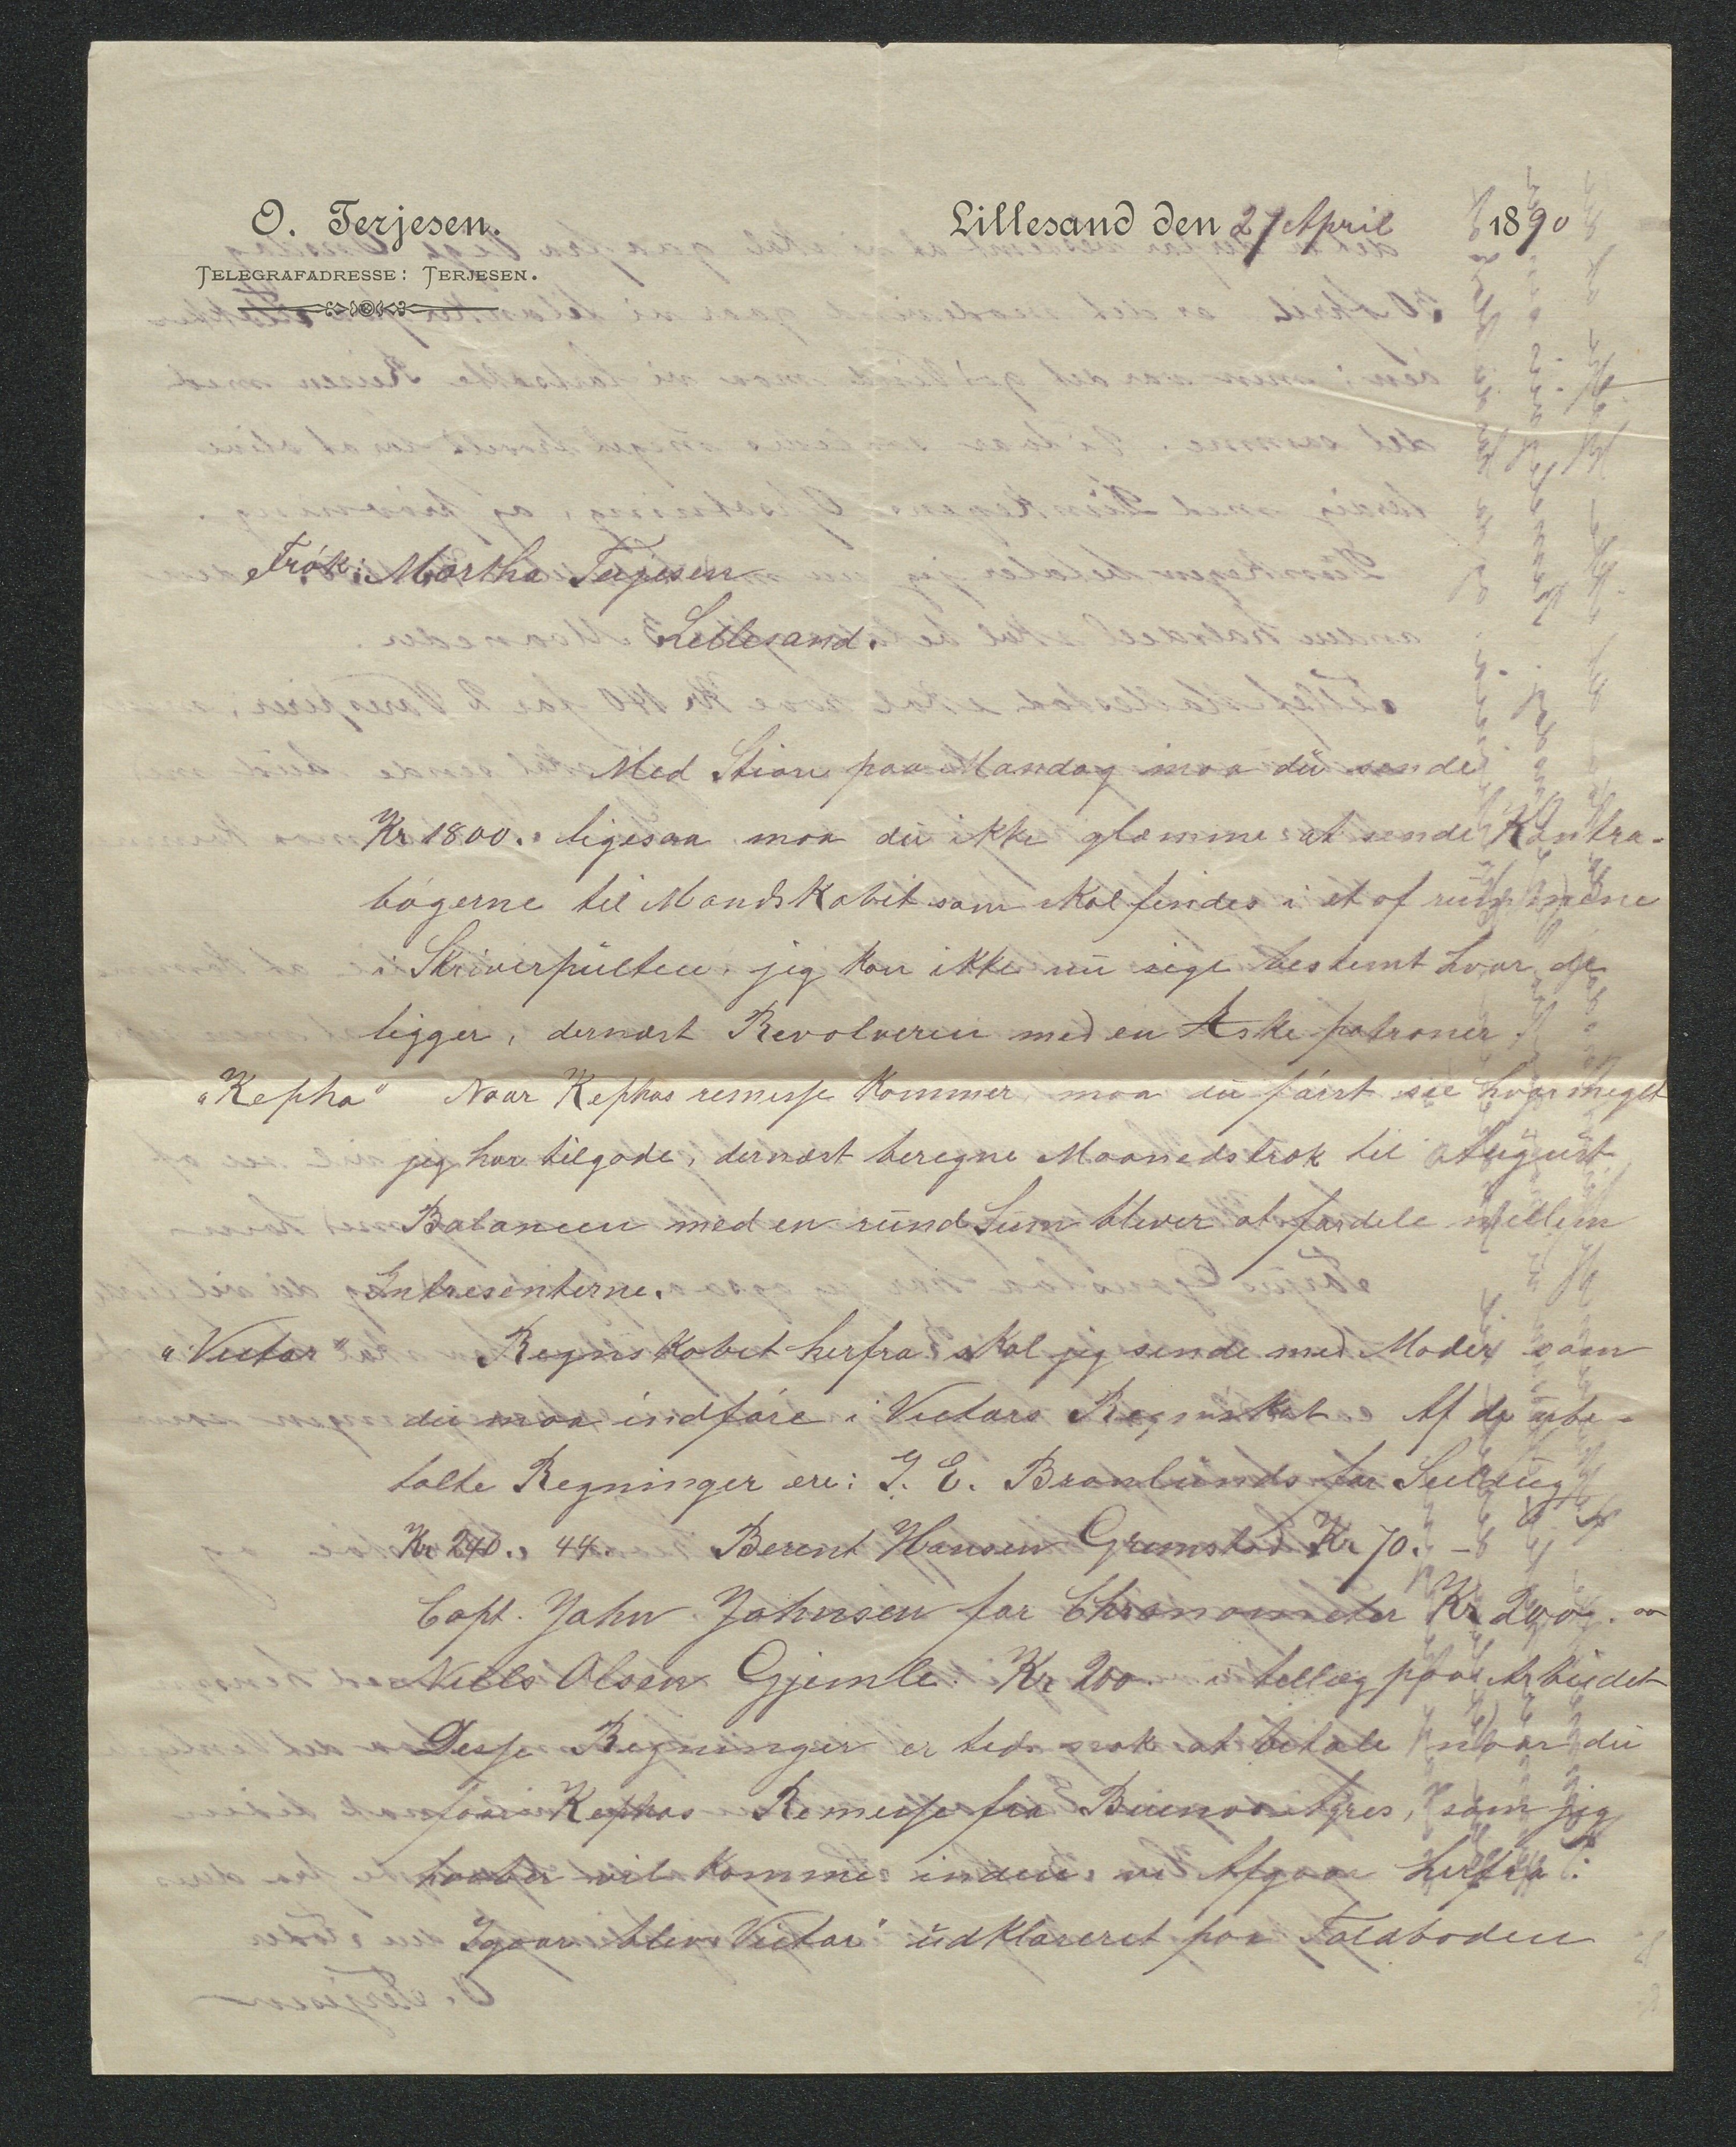 O. Terjesen.
TELEGRAFADRESSE: TERJESEN.
Lillesand den 27 April 1890
Frók: Martha Terjesen
Lillesand.
Med Stian paa Mandag maa du sende
Kr 1800. ligesaa maa du ikke glæmme at sende Kontra-
bógerne til Mandskabet som skal findes i et af rummene
i Skriverpulten, jeg kan ikke nu sige bestemt hvor de
ligger, dernæst Revolveren med en Æske patroner
"Kepha" Naar Kephas remisse kommer, maa du fórst see hvormeget
jeg har tilgode, dernæst beregne Maanedstræk til August
Balancen med en rund Sum bliver at fordele mellem
Intresenterne.
"Victor" Regnskabet herfra skal jeg sende med Moder som
du maa indfóre i Victors Regnskab. Af de ube-
talte Regninger ere: J. E. Bronlunds for Seildug
Kr 240. 44. Berent Hansen Grimstad Kr 70. -
Capt. John Johnsen for Chronometer Kr 200. oo
Niels Olsen Gjemle. Kr 200. i tillæg paa Arbeidet
Desse Regninger er tids nok at betale naar du
faar Kephas Remisse fra Buenos Ayres, som jeg
haaber vil komme inden vi Afgaar herfra.
Igaar blev "Victor" udklareret paa Toldboden